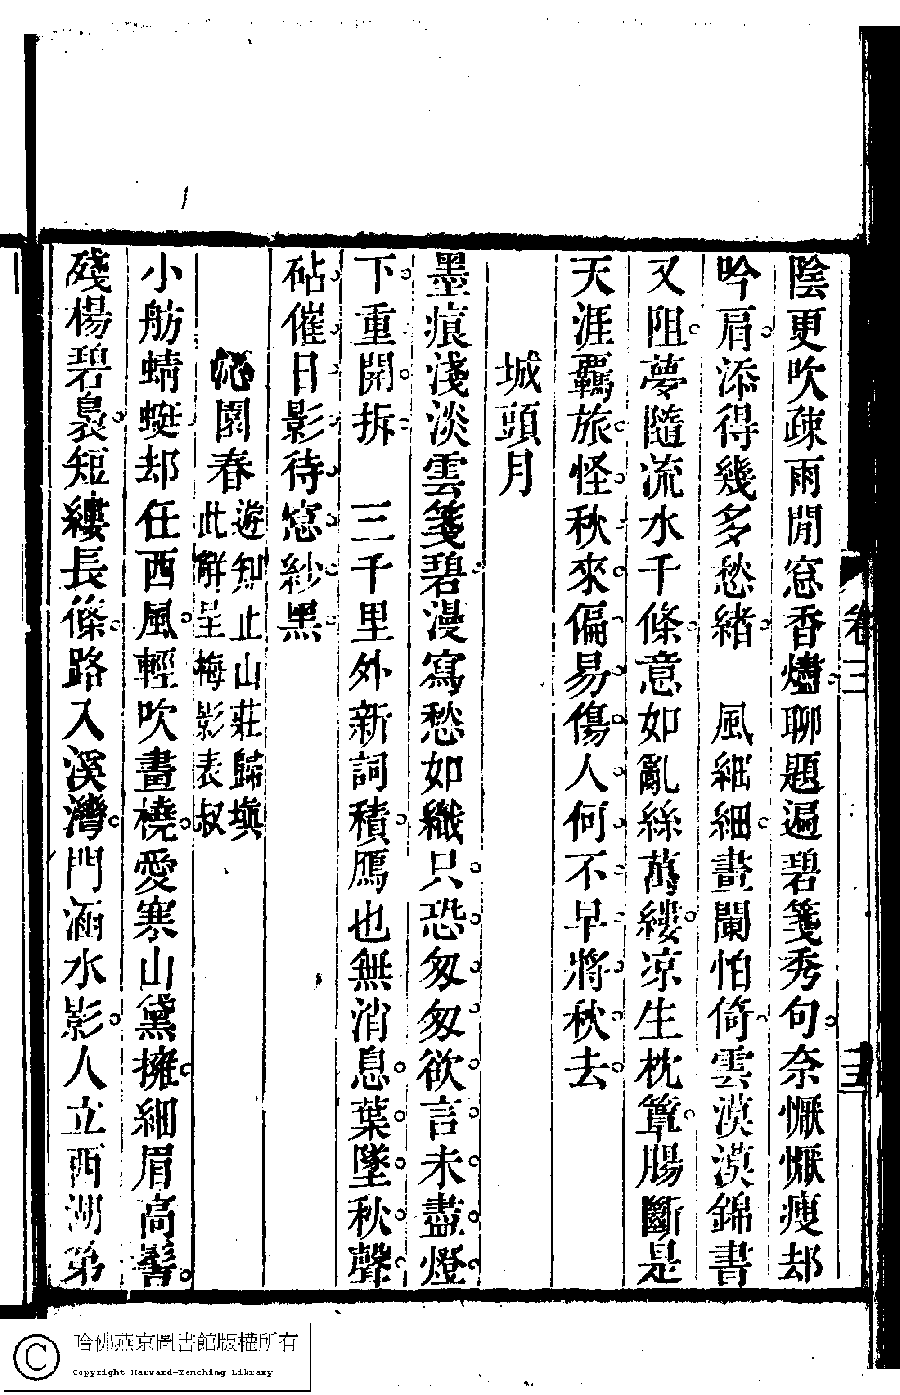 陰更吹疎雨閒窓香燼聊題遍碧箋秀句奈懨懨瘦却
吟肩添得幾多愁緒　風細細畫闌怕倚雲漠漠錦書
又阻夢隨流水千條意如亂絲萬縷凉生枕簟腸斷是
天涯羈旅怪秋來偏易傷人何不早將秋去
城頭月
墨痕淺淡雲箋碧漫寫愁如織只恐匆匆欲言未盡燈
下重開拆　三千里外新詞積鴈也無消息葉墜秋聲
砧催日影待窓紗黑
沁園春
遊知止山莊歸填
此解呈梅影表叔
小舫蜻蜓却任西風輕吹畫橈愛寒山黛擁細眉高髻
殘楊碧裊短縷長條路入溪灣門涵水影人立西湖第
卷二
三
哈佛燕京圖書館版權所有
Copyright Harvard-Yenching Library